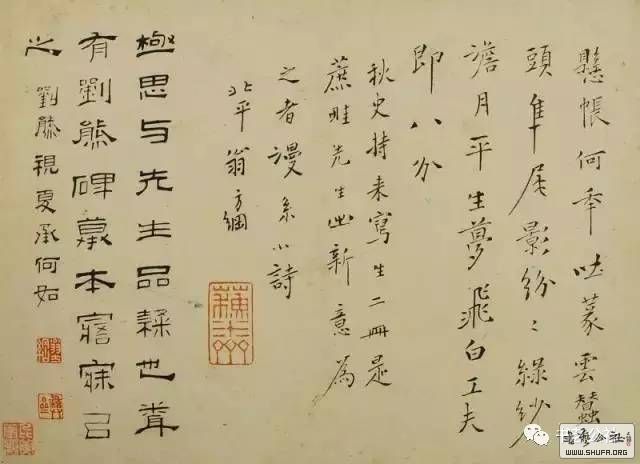 懸帳何秊吐篆雲蠶
頭隼尾影紛〻綠紗
檐月平生夢飛白工夫
即八分
秋史持來寫生二冊是
蔗畦先生出新意為
之者謾系小詩
北平翁方綱
極思与先生品隸也
有劉熊碑摹本寤寐㠯
之 劉熊視夏承何如
書藝公社
WWW.SHUFA.ORG